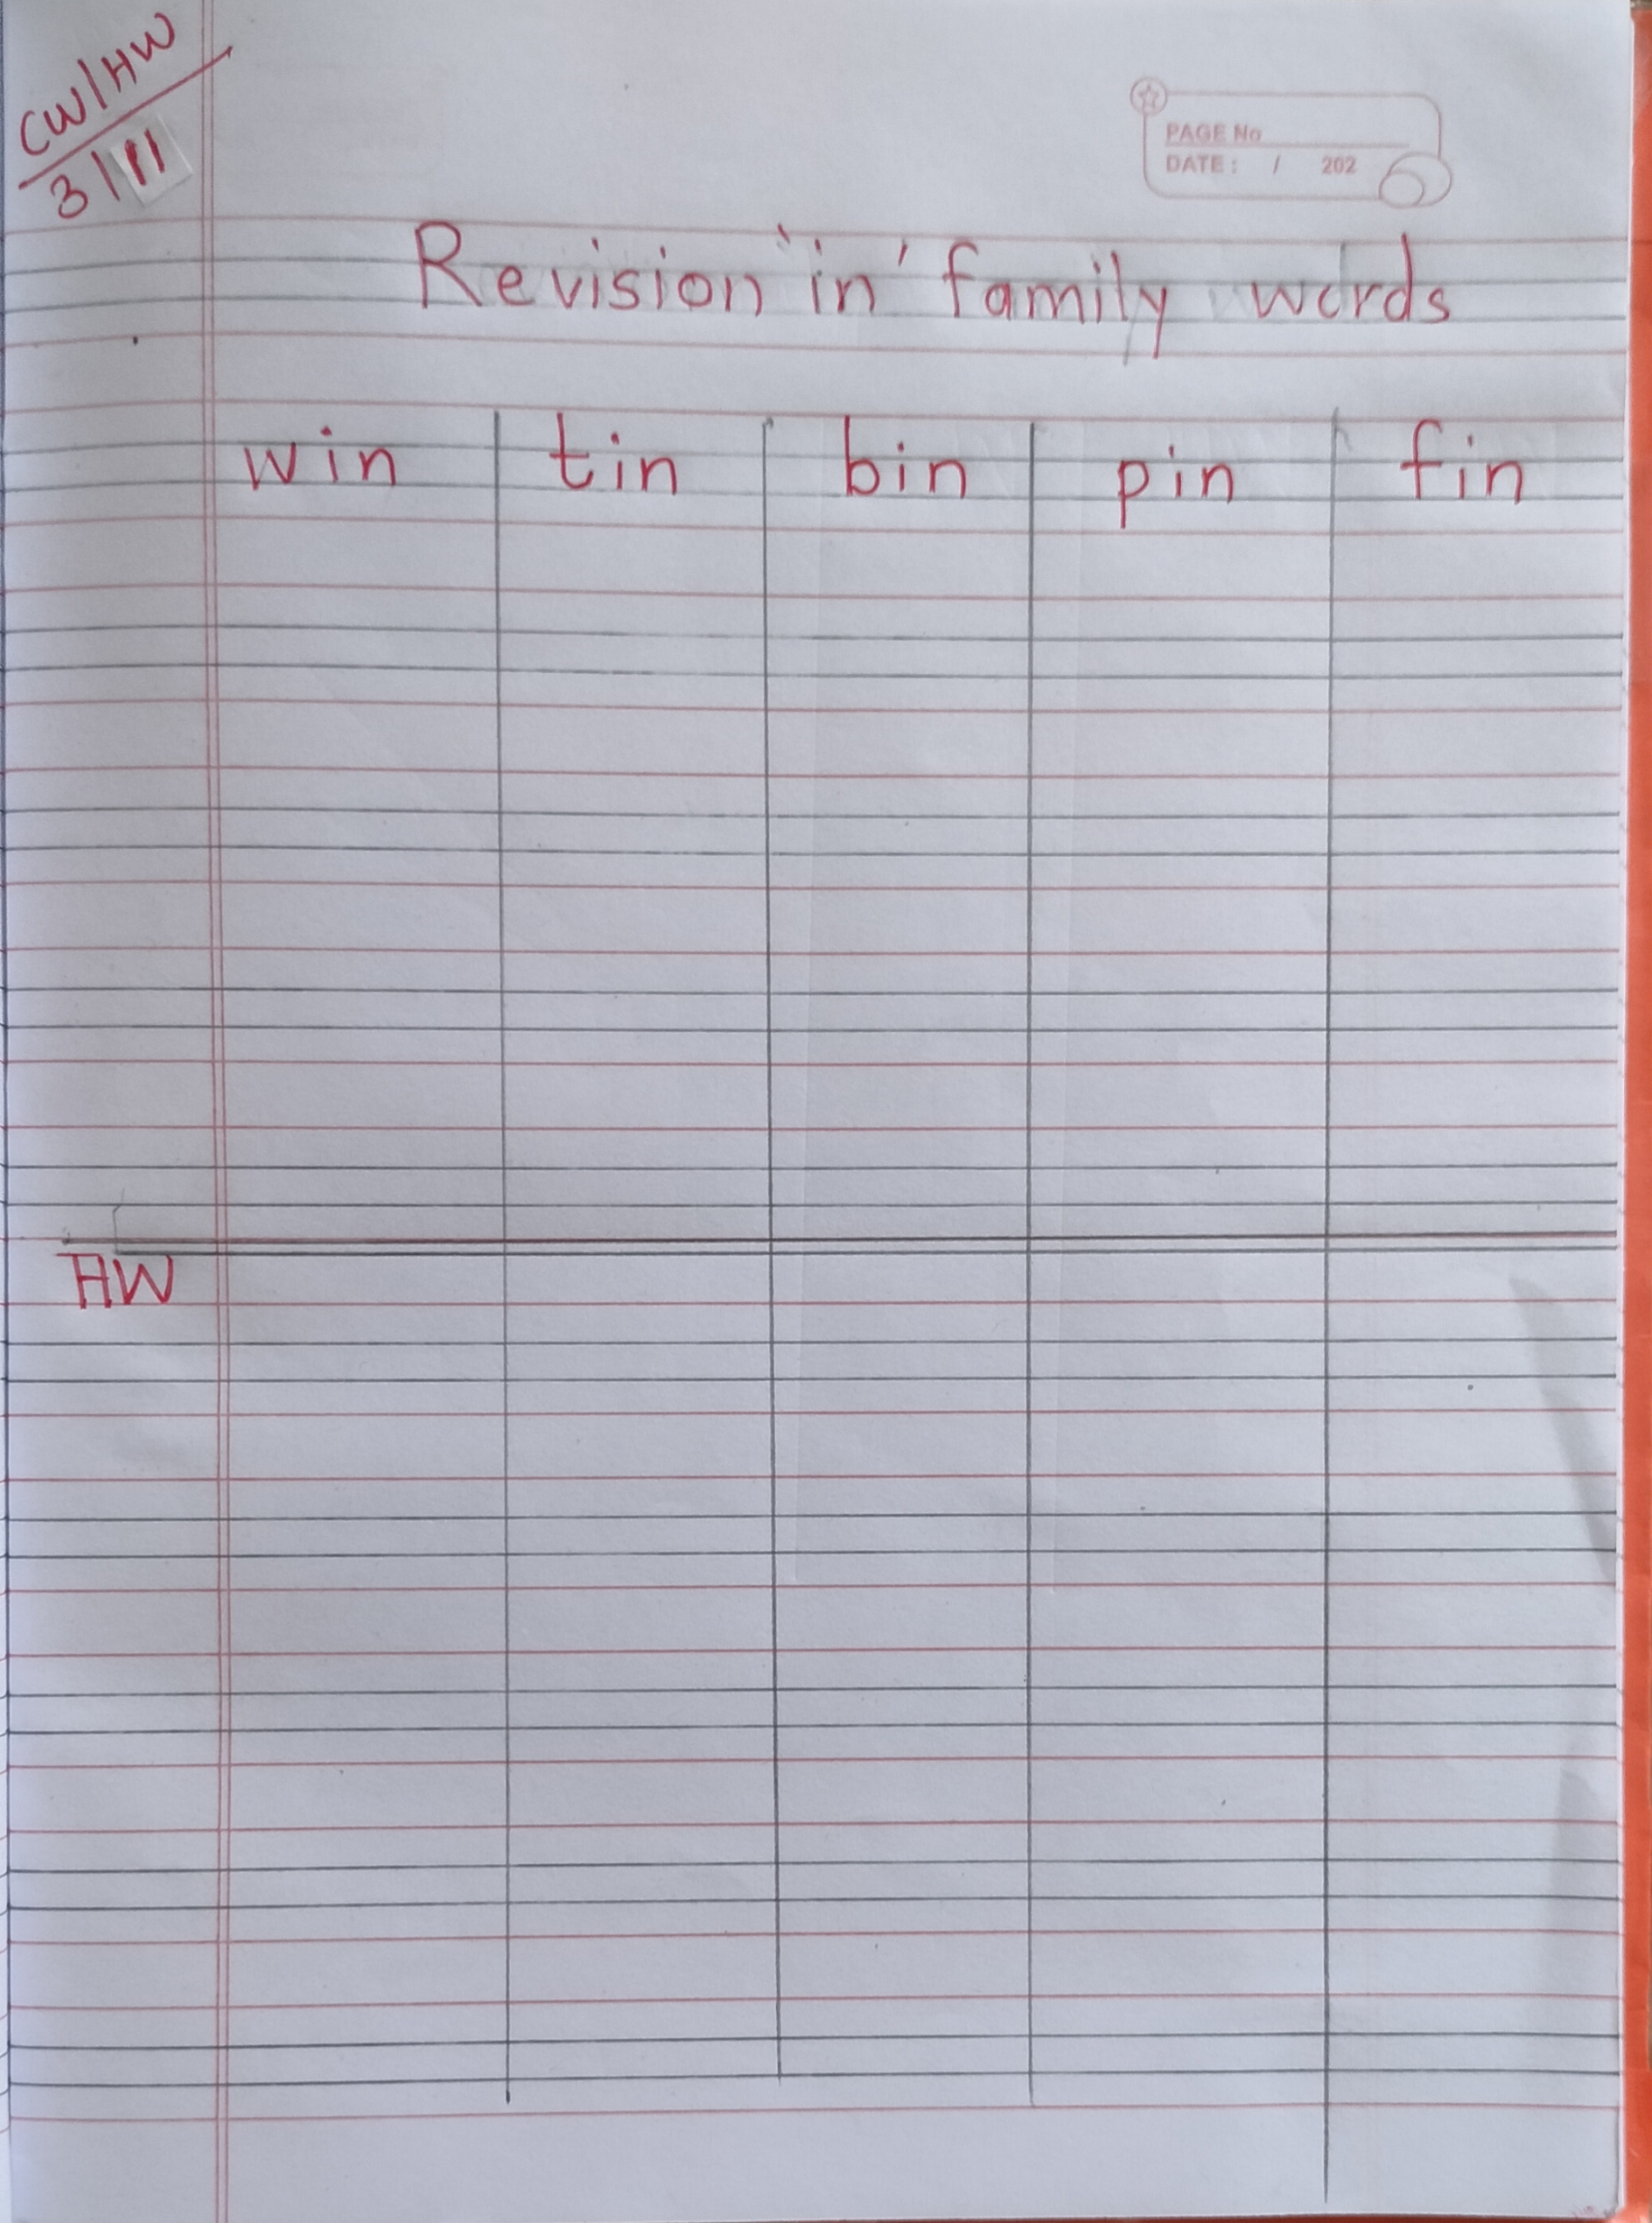 CW/HW
3/11
PAGE No
DATE: / 202
Revision 'in' family words
win tin bin pin fin
HW